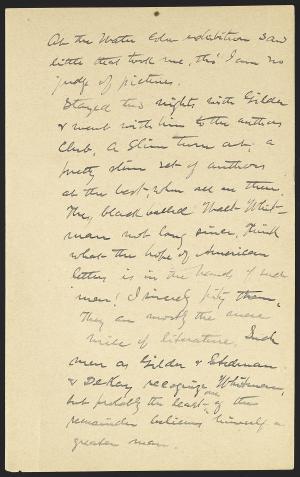 At the Water Color exhibition saw
little that took me, tho' I am no
judge of pictures.
Stayed two nights with Gilder
& went with him to the authors
Club. A slim turn out; a
pretty slim set of authors
at the best, when all are there.
They blackballed Walt Whit-
man not long since, think
what the hope of American
letters is in the hands of such
men! I sincerely pity them,
They are mostly the mere
mice of literature. Such
men as Gilder & Stedman
& DeKay recognize Whitman,
but probably the least one of the
remainder believes himself a
greater man.